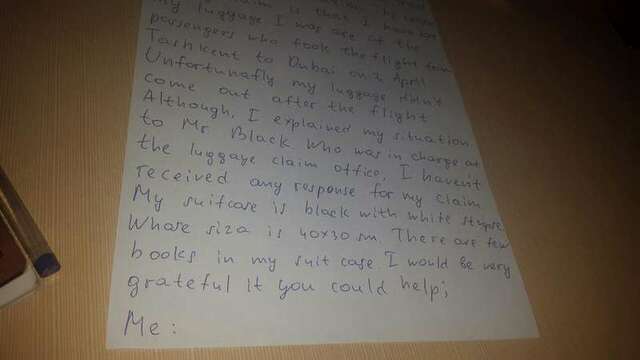 is that I have
my luggage I was one of the
passengers who took the flight from
Tashkent to Dubai on 2 April
Unfortunatly my luggage didn't
come out after the flight
Although, I explained my situation
to Mr Black who was in charge at
the luggage claim office, I haven't
received any response for my claim
My suitcase is black with white stripse
Whose siza is 40x30 sm. There are few
books in my suit case. I would be very
grateful it you could help;
Me: